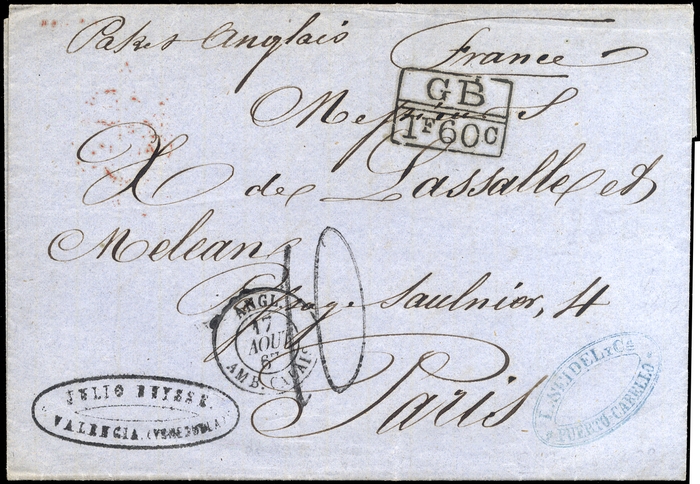 Paket Anglais
France
GB
1F60C
Messieurs
X de Lassalle et
Melean
Passage Saulnier, 4
Paris
10
ANGL.
17
AOUT
67
AMB. CALAIS
JULIO BUYSSE.
VALENCIA. (VENEZUELA)
L. STADEL y Ca
PUERTO-CABELLO